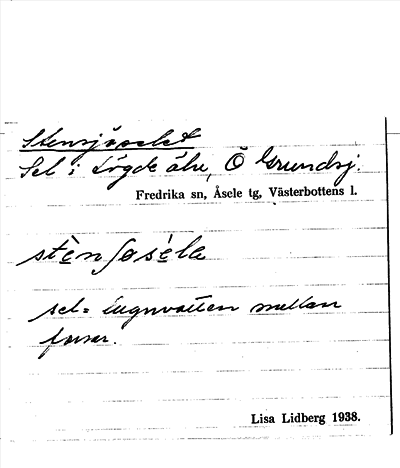 Stensjöselet
Sel i Lögde älv, Ö Grundsj.
Fredrika sn, Åsele tg, Västerbottens l.
stènʃøséla
sel = lugnvatten mellan
forsar.
Lisa Lidberg 1938.